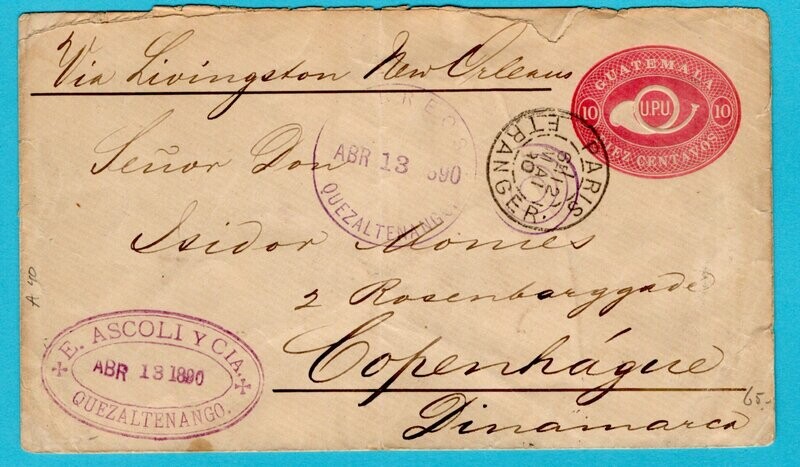 Via Livingston New Orleans
GUATEMALA
10 U.P.U. 10
EZ CENTAVOS
ABR 13 890
QUEZALTENANGO.
PARIS
ETRANGER.
Señor Don
Isidor Momes
2 Rosenborggade
Copenhágue
Dinamarca
E. ASCOLI Y CIA.
ABR 13 1890
QUEZALTENANGO.
A 40
65-